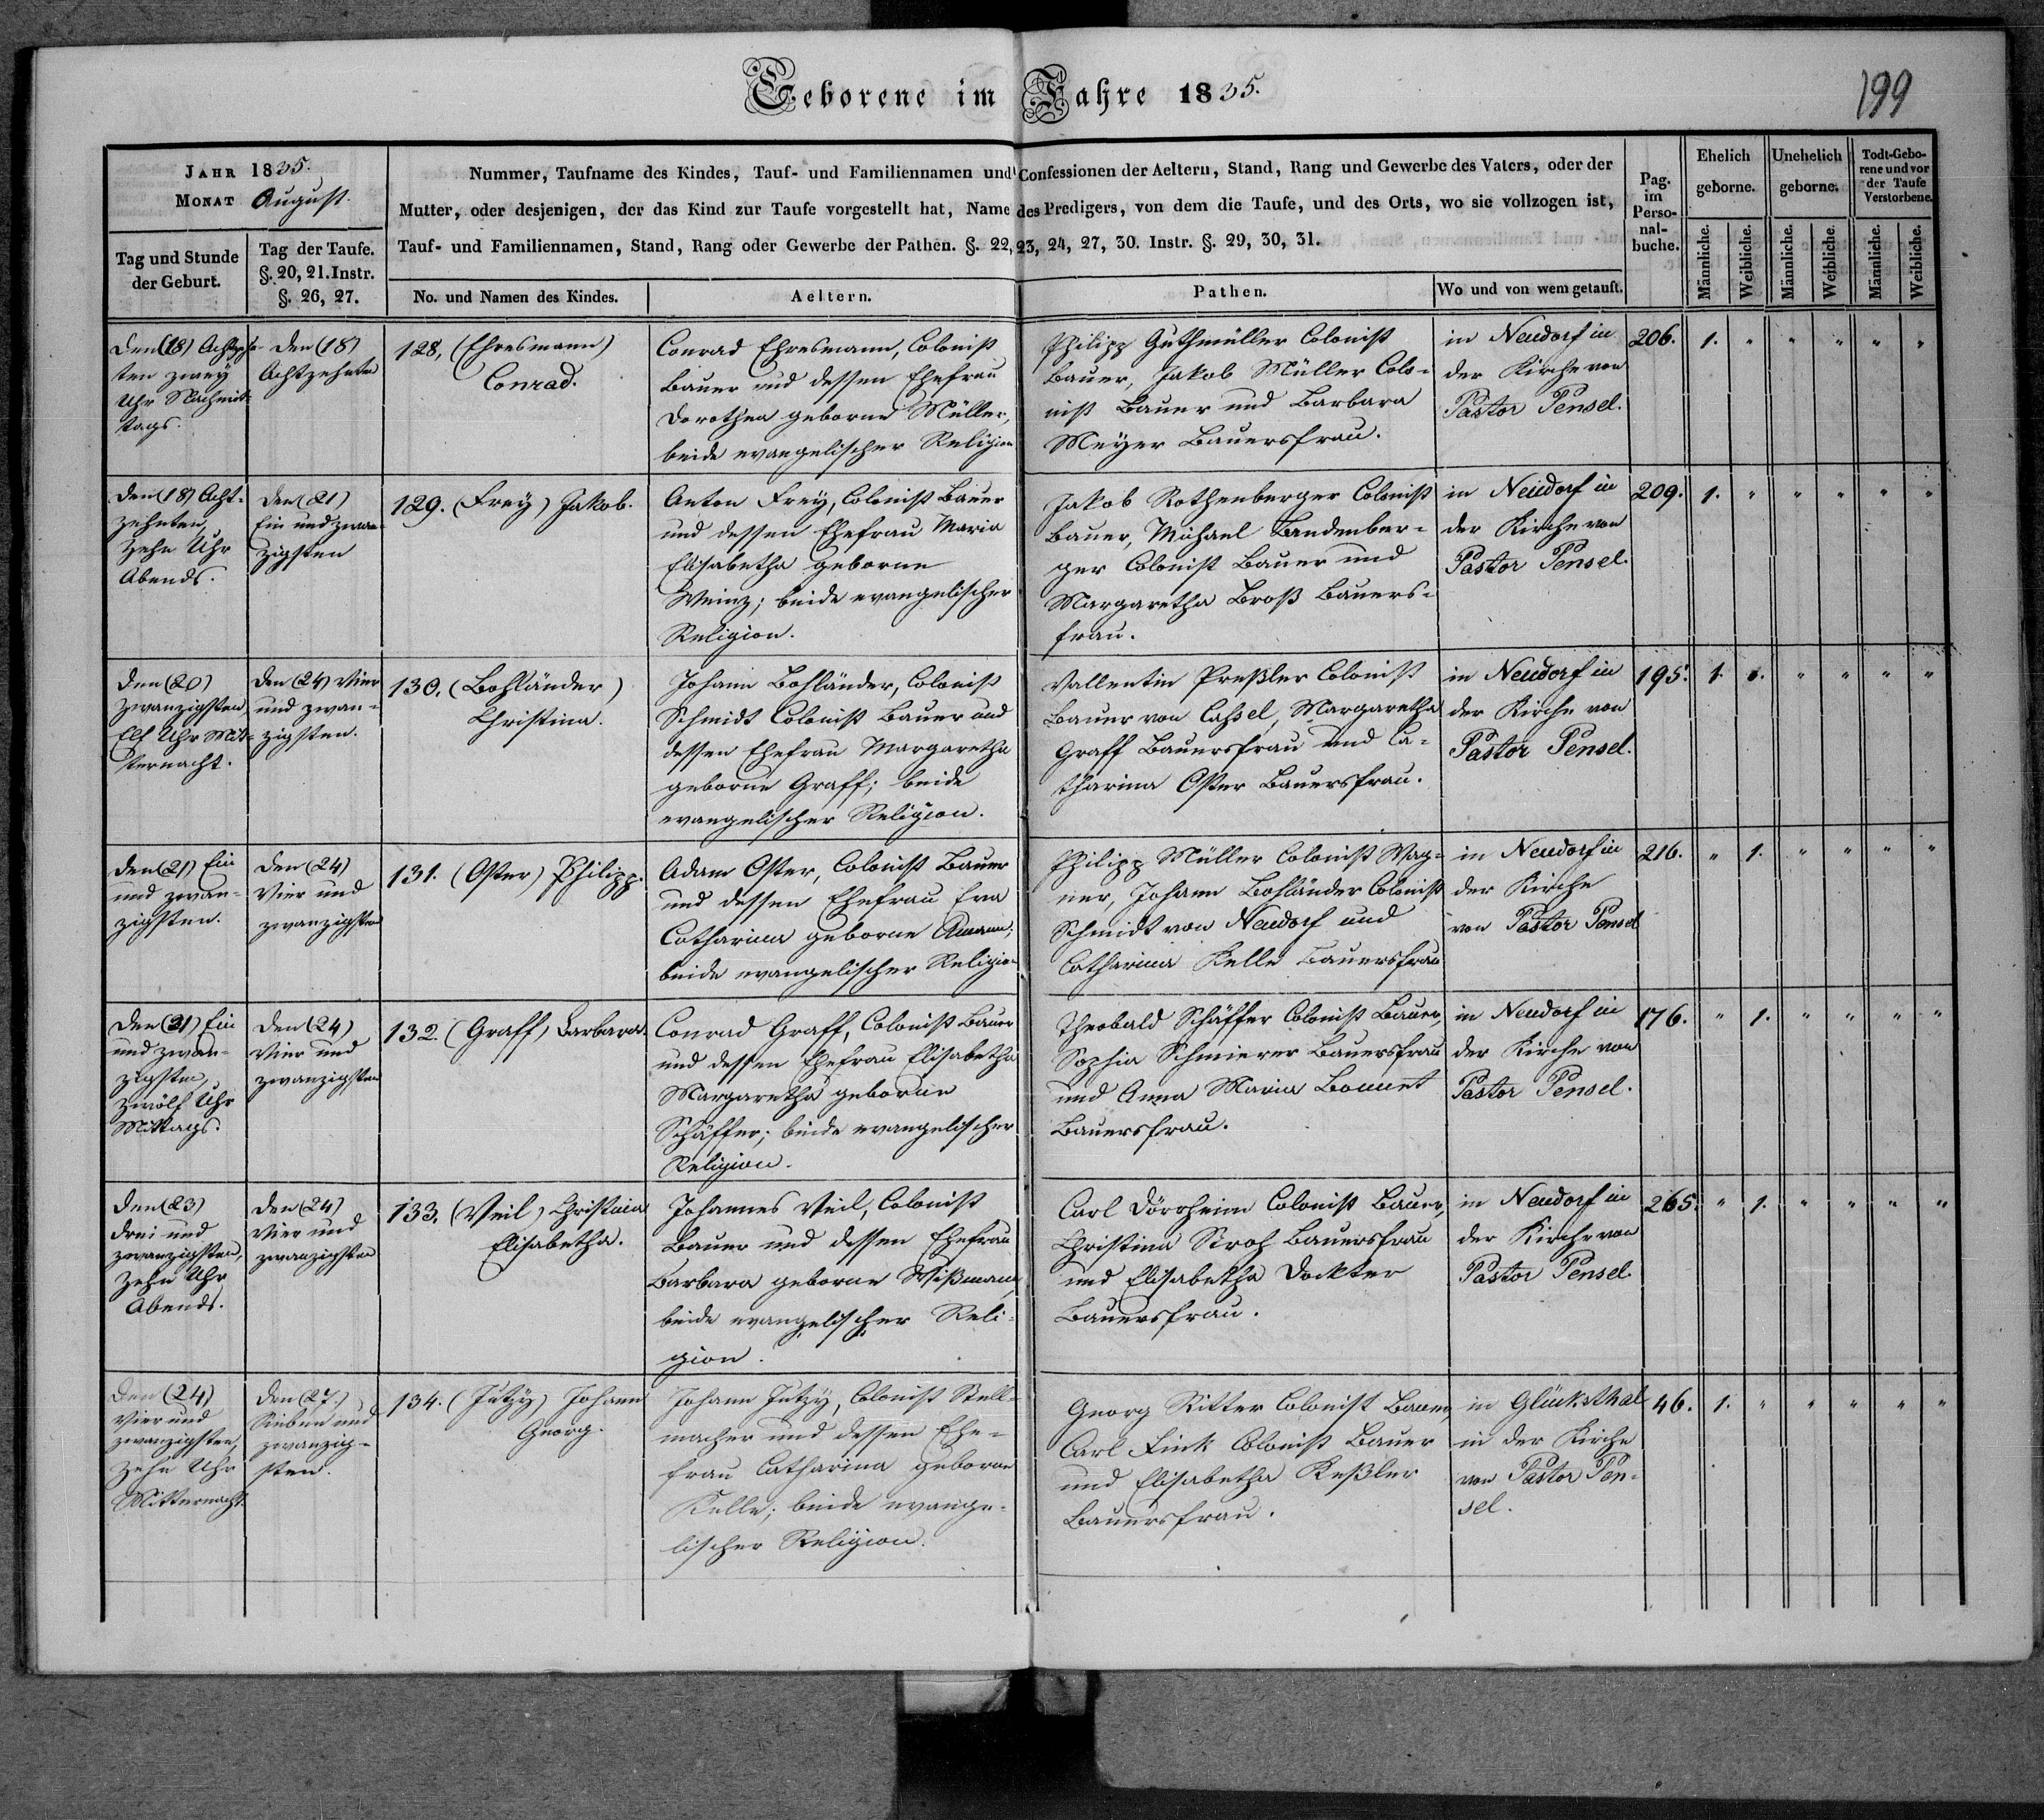 Geborene im Jahre 1835.
199
JAHR 1835.
MONAT August.
Nummer, Taufname des Kindes, Tauf- und Familiennamen und Confessionen der Aeltern, Stand, Rang und Gewerbe des Vaters, oder der
Mutter, oder desjenigen, der das Kind zur Taufe vorgestellt hat, Name des Predigers, von dem die Taufe, und des Orts, wo sie vollzogen ist,
Tauf- und Familiennamen, Stand, Rang oder Gewerbe der Pathen. §. 22, 23, 24, 27, 30. Instr. §. 29, 30, 31.
Tag und Stunde
der Geburt.
Tag der Taufe.
§. 20, 21. Instr.
§. 26, 27.
No. und Namen des Kindes.
Aeltern.
Pathen.
Wo und von wem getauft.
Pag.
im
Perso-
nal-
buche.
Ehelich
geborne.
Unehelich
geborne.
Todt-Gebo-
rene und vor
der Taufe
Verstorbene.
Männliche.
Weibliche.
Männliche.
Weibliche.
Männliche.
Weibliche.
Den (18) Achtzehn-
ten zwey
Uhr Nachmit-
tags.
Den (18)
Achtzehnten
128. (Ehresmann)
Conrad.
Conrad Ehresmann, Colonist
Bauer und dessen Ehefrau
Dorothea geborne Müller,
beide evangelischer Religion
Philipp Guthmüller Colonist
Bauer, Jakob Müller Colo-
nist Bauer und Barbara
Meyer Bauersfrau.
in Neudorf in
der Kirche von
Pastor Pensel.
206. 1. " " " " "
Den (18) Acht-
zehnten,
Zehn Uhr
Abends.
Den (21)
Ein und zwan-
zigsten
129. (Frey) Jakob.
Anton Frey, Colonist Bauer
und dessen Ehefrau Maria
Elisabetha geborne
Weinz; beide evangelischer
Religion.
Jakob Rothenberger Colonist
Bauer, Michael Bandenber-
ger Colonist Bauer und
Margaretha Broß Bauers-
frau.
in Neudorf in
der Kirche von
Pastor Pensel.
209. 1. " " " " "
Den (20)
zwanzigsten,
Elf Uhr Mit-
ternacht.
Den (24) Vier
und zwan-
zigsten.
130. (Bohländer)
Christina.
Johann Bohländer, Colonist
Schmidt Colonist Bauer und
dessen Ehefrau Margaretha
geborne Graff; beide
evangelischer Religion.
Vallentin Preßler Colonist
Bauer von Cassel, Margaretha
Graff Bauersfrau und Ca-
tharina Oster Bauersfrau.
in Neudorf in
der Kirche von
Pastor Pensel.
195. 1. " " " "
Den (21) Ein
und zwan-
zigsten.
Den (24)
Vier und
zwanzigsten
131. (Oster) Philipp.
Adam Oster, Colonist Bauer
und dessen Ehefrau Eva
Catharina geborne Amann;
beide evangelischer Religion
Philipp Müller Colonist Wag-
ner, Johann Bohländer Colonist
Schmidt von Neudorf und
Catharina Kelle Bauersfrau
in Neudorf in
der Kirche
von Pastor Pensel
216. " 1. " " " "
Den (21) Ein
und zwan-
zigsten,
zwölf Uhr
Mittags.
Den (24)
Vier und
zwanzigsten
132. (Graff) Barbara.
Conrad Graff, Colonist Bauer
und dessen Ehefrau Elisabetha
Margaretha geborne
Schäffer; beide evangelischer
Religion.
Theobald Schäffer Colonist Bauer,
Sophia Schmierer Bauersfrau
und Anna Maria Bonnet
Bauersfrau.
in Neudorf in
der Kirche von
Pastor Pensel.
176. " 1. " " " "
Den (23)
Drei und
zwanzigsten,
Zehn Uhr
Abends.
Den (24)
Vier und
zwanzigsten
133. (Veil) Christina
Elisabetha.
Johannes Veil, Colonist
Bauer und dessen Ehefrau
Barbara geborne Wißmann,
beide evangelischer Reli-
gion.
Carl Dörrheim Colonist Bauer,
Christina Stroh Bauersfrau
und Elisabetha Dockter
Bauersfrau.
in Neudorf in
der Kirche von
Pastor Pensel.
265. " 1. " " " "
Den (24)
Vier und
zwanzigsten,
Zehn Uhr
Mitternacht.
Den (27.)
Sieben und
zwanzig-
sten.
134. (Jutzy) Johann
Georg.
Johann Jutzy, Colonist Stell-
macher und dessen Ehe-
frau Catharina geborne
Kelle; beide evange-
lischer Religion.
Georg Ritter Colonist Bauer,
Carl Fink Colonist Bauer
und Elisabetha Keßler
Bauersfrau.
in Glücksthal
in der Kirche
von Pastor Pen-
sel.
46. 1. " " " " "